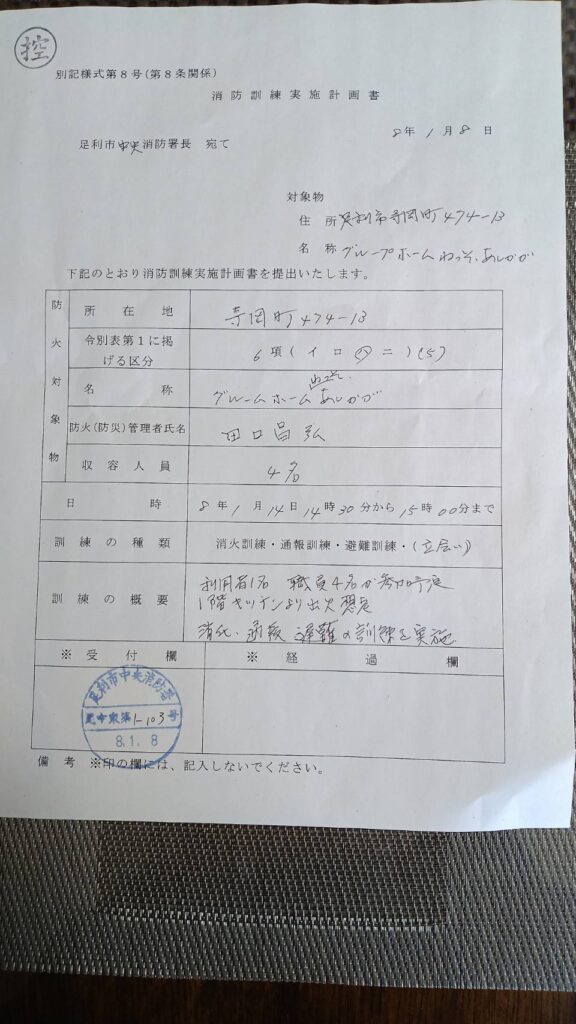 控
別記様式第8号(第8条関係)
消防訓練実施計画書
8年1月8日
足利市中央消防署長 宛て
対象物
住所 足利市寺岡町474-13
名称 グループホームねっそ、あしかが
下記のとおり消防訓練実施計画書を提出いたします。
防火対象物
所在地 寺岡町474-13
令別表第1に掲げる区分 6項(イロハニ)(5)
名称 グルームホームあしかが
防火(防災)管理者氏名 田口昌弘
収容人員 4名
日時 8年1月14日14時30分から15時00分まで
訓練の種類 消火訓練・通報訓練・避難訓練・(立会い)
訓練の概要 利用者1名 職員4名が参加予定
1階キッチンより出火想定
消化、通報 避難の訓練を実施
※受付欄 ※経過欄
足利市中央消防署
第1-103号
8.1.8
備考 ※印の欄には、記入しないでください。